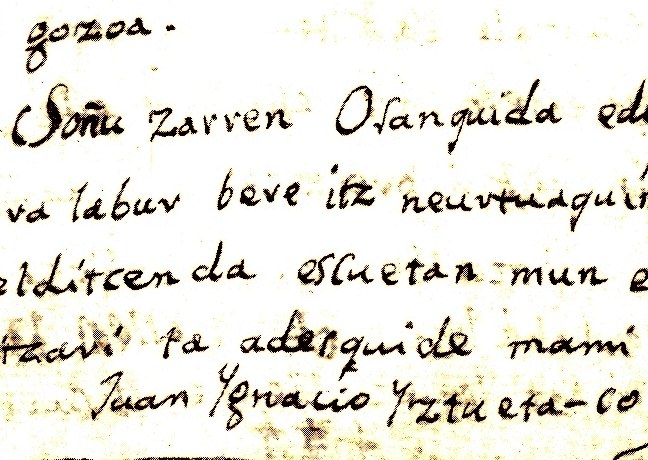 gozoa.
Soñu zarren Osanquida edu
ra labur bere itz neurtuaquin
elditcen da escuetan mun e
tzari ta adesquide mami
Juan Ygnacio Yztueta-co